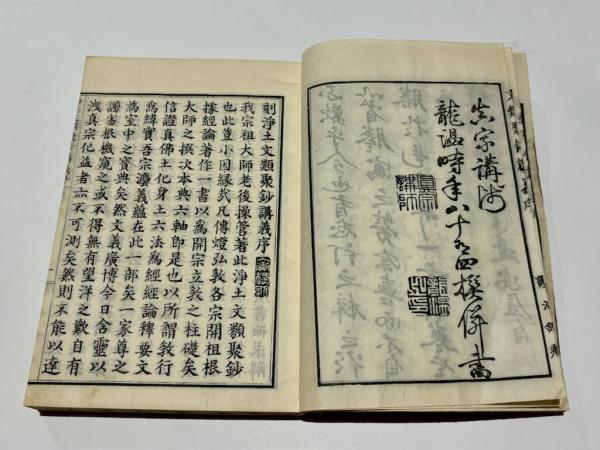 真宗講師
龍温時年八十又四撰併書
刻淨土文類聚鈔講義序
我宗祖大師老後操管著此淨土文類聚鈔
也此豈小因縁㢤凡傳燈弘教各宗開祖根
據經論著作一書以爲開宗立教之柱礎矣
大師之撰次本典六軸即是也以所謂教行
信證真佛土化身土六法爲經經論釋要文
爲緯實吾宗濃義蘊在此一部矣一家尊之
爲室中之寶典矣然文義廣博今日含靈以
謭劣根機窺之或不得無有望洋之歎自有
洩真宗化益者亦不可測矣然則不能以達